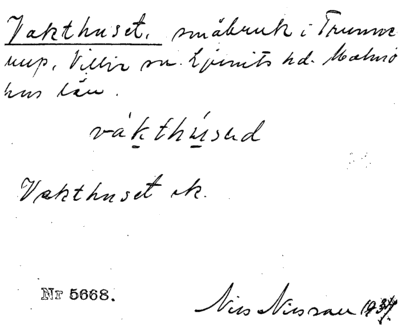 Vakthuset, småbruk i Trunne
rup, Villie sn. Ljunits hd. Malmö
hus län.
vákthúsed
Vakthuset ek.
Nr 5668.
Nils Nilsson 1934.